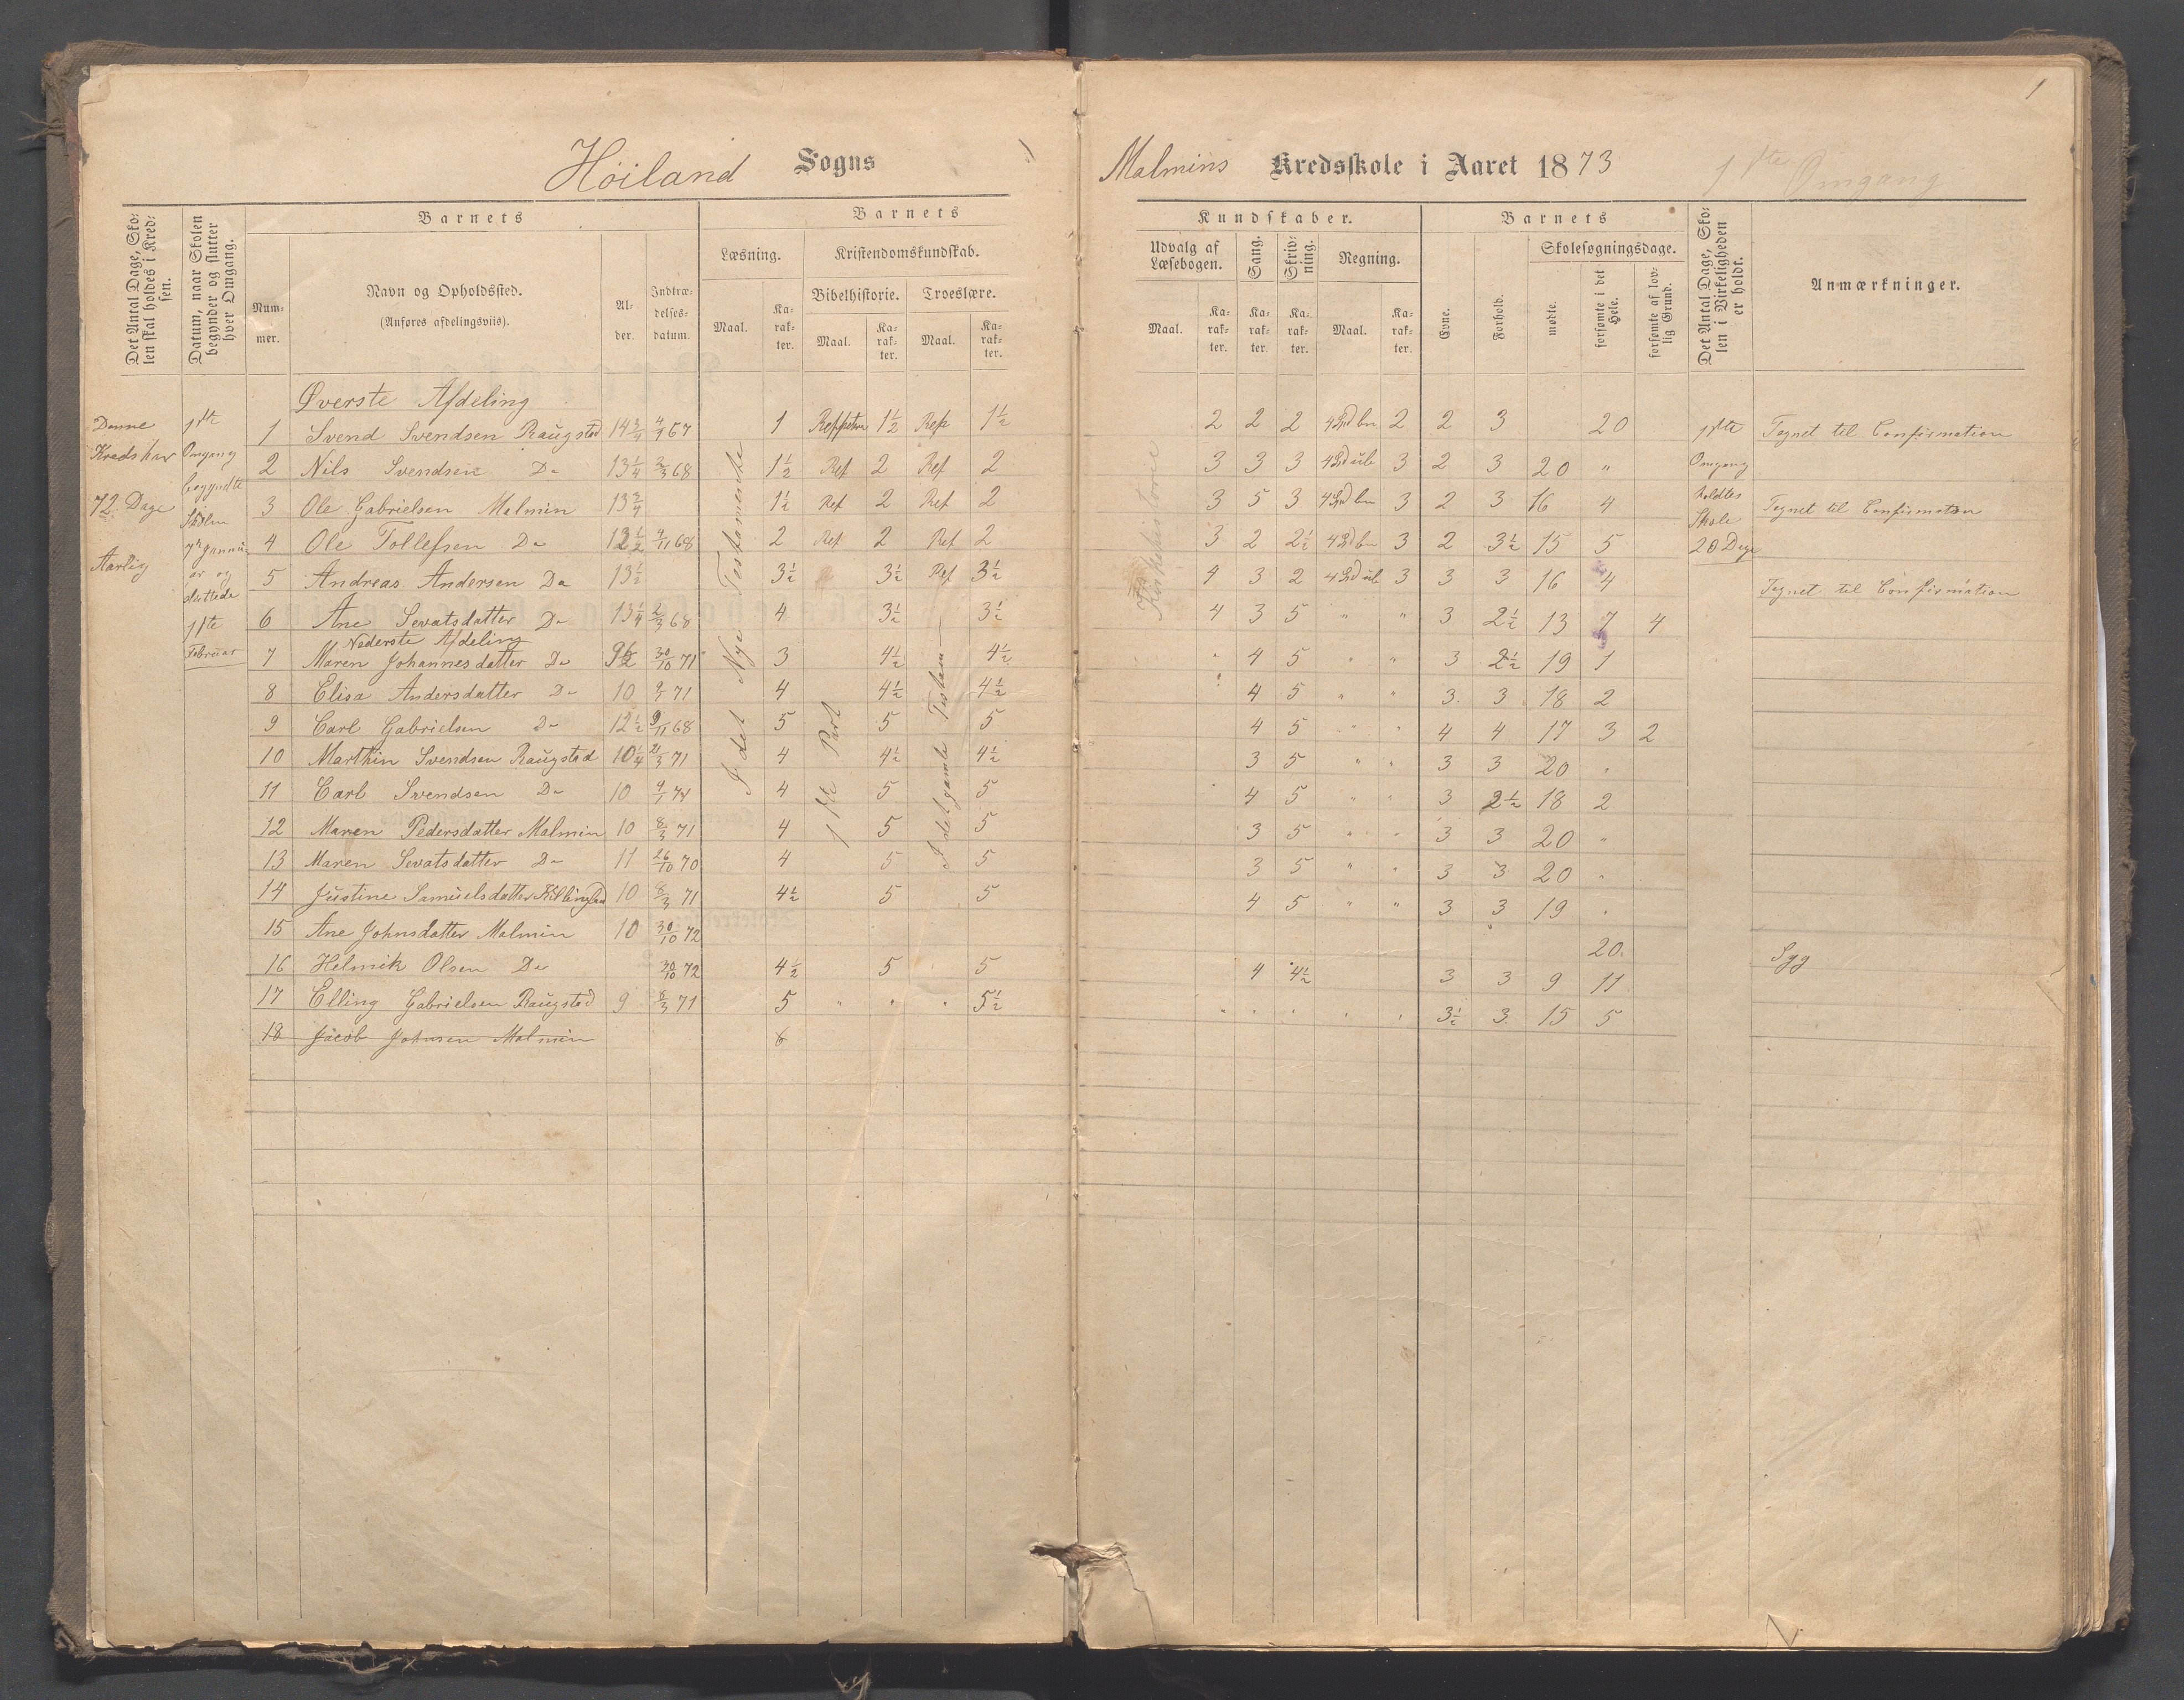 1
Höiland Sogns
Malmins Kredsskole i Aaret 1873 1ste Omgang
Det Antal Dage, Skolen skal holdes i Kredsen.
Datum, naar Skolen begynder og slutter hver Omgang.
Barnets
Nummer.
Navn og Opholdssted.
(Anføres afdelingsviis).
Alder.
Indtrædelsesdatum.
Barnets
Læsning.
Maal.
Karakter.
Kristendomskundskab.
Bibelhistorie.
Maal.
Karakter.
Troeslære.
Maal.
Karakter.
Kundskaber.
Udvalg af Læsebogen.
Maal.
Karakter.
Sang.
Karakter.
Skrivning.
Karakter.
Regning.
Maal.
Karakter.
Barnets
Evne.
Forhold.
Skolesøgningsdage.
mødte.
forsømte i det Hele.
forsømte af lovlig Grund.
Det Antal Dage, Skolen i Virkeligheden er holdt.
Anmærkninger.
Denne
Kreds har
72 Dage
Aarlig
1ste
Omgang
begyndte
Skolen
7de Januar
og
sluttede
1ste
Februar
Øverste Afdeling
1 Svend Svendsen Raugstad 14 3/4 67 1 1 1/2 Rep 1 1/2 2 2 2 2 2 3 20 Tegnet til Confirmation
2 Nils Svendsen Do 13 1/4 68 1 1/2 Ref 2 Ref 2 3 3 3 3 2 3 20 "
3 Ole Gabrielsen Malmin 13 3/4 1 1/2 Ref 2 Ref 2 3 5 3 3 2 3 16 4 Tegnet til Confirmation
4 Ole Tollefsen Do 12 1/2 68 2 Ref 2 Ref 2 3 2 2 1/2 3 2 3 1/2 15 5
5 Andreas Andersen Do 13 1/2 3 1/2 3 1/2 Ref 3 1/2 4 3 2 3 3 3 16 4 Tegnet til Confirmation
6 Ane Sevatsdatter Do 13 1/4 2/3 68 4 3 1/2 3 1/2 4 3 5 " " 3 2 1/2 13 7 4
Nederste Afdeling
7 Maren Johannesdatter Do 30/10 71 3 4 1/2 4 1/2 " 4 5 " " 3 2 1/2 19 1
8 Elisa Andersdatter Do 10 9/1 71 4 4 1/2 4 1/2 " 4 5 " " 3 3 18 2
9 Carl Gabrielsen Do 12 1/2 9/11 68 5 5 5 4 5 " " 4 4 17 3 2
10 Marthin Svendsen Raugstad 10 1/4 2/3 71 4 4 1/2 4 1/2 3 5 " " 3 3 20 "
11 Carl Svendsen Do 10 4 5 5 4 5 " " 3 2 1/2 18 2
12 Maren Pedersdatter Malmin 10 8/3 71 4 5 5 3 5 " " 3 3 20 "
13 Maren Sevatsdatter Do 11 26/10 70 4 5 5 3 5 " " 3 3 20 "
14 Justine Samuelsdatter 10 8/3 71 4 1/2 5 5 4 5 " " 3 3 19 "
15 Ane Johnsdatter Malmin 10 30/10 72 20 Syg
16 Helmik Olsen Do 30/10 72 4 1/2 5 5 4 4 1/2 3 3 9 11
17 Elling Gabrielsen Raugstad 9 8/3 71 5 " " " 5 1/2 " " " " " 3 1/2 3 15 5
18 Jacob Johnsen Malmin 6
I det Nye Testamente
1ste Part
I det gamle Testam
Kirkehistorie
1ste
Omgang
holdtes
Skole
20 Dage